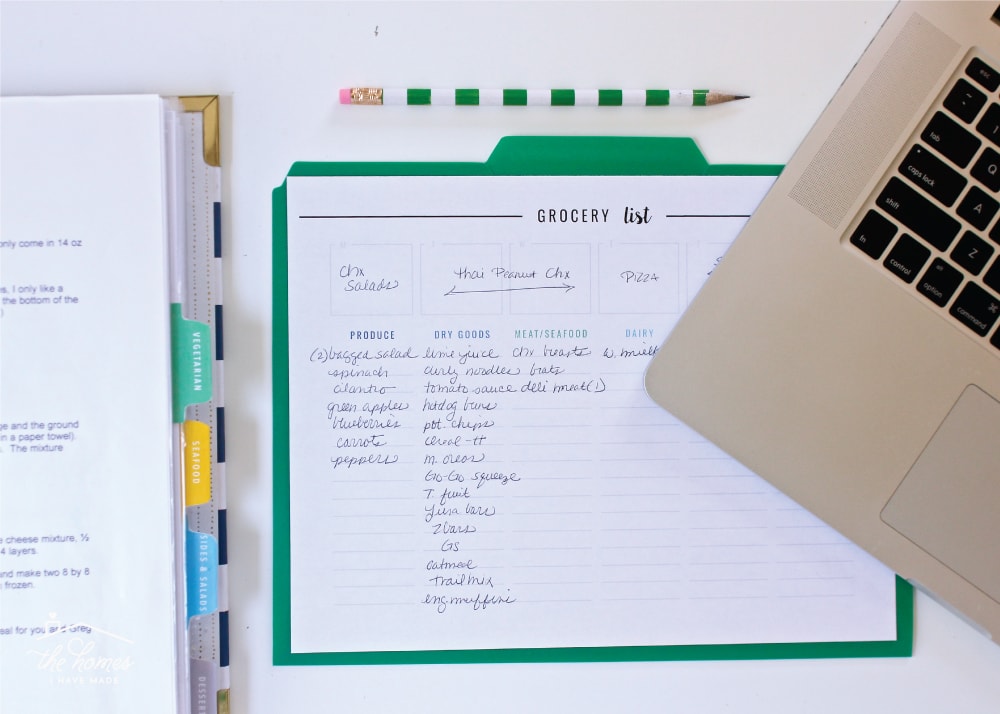 only come in 14 oz
s, I only like a
the bottom of the
)
ge and the ground
in a paper towel).
. The mixture
e cheese mixture, ½
4 layers.
und make two 8 by 8
frozen.
eal for you and Greg
VEGETARIAN
SEAFOOD
SIDES & SALADS
DESSERTS
the homes
I HAVE MADE
GROCERY list
Chx
Salads
Thai Peanut Chx
PIZZA
PRODUCE
(2) bagged salad
spinach
cilantro
green apples
blueberries
carrots
peppers
DRY GOODS
lime juice
curly noodles
tomato sauce
hotdog buns
pot. chips
cereal - H
m. oreos
Go-Go squeeze
T. fruit
Luna bars
Z bars
GS
oatmeal
trail mix
eng muffins
MEAT/SEAFOOD
chx breasts
brats
deli meat (1)
DAIRY
w. milk
esc
~
tab
Q
caps lock
A
shift
Z
fn
control
alt
option
⌘
command